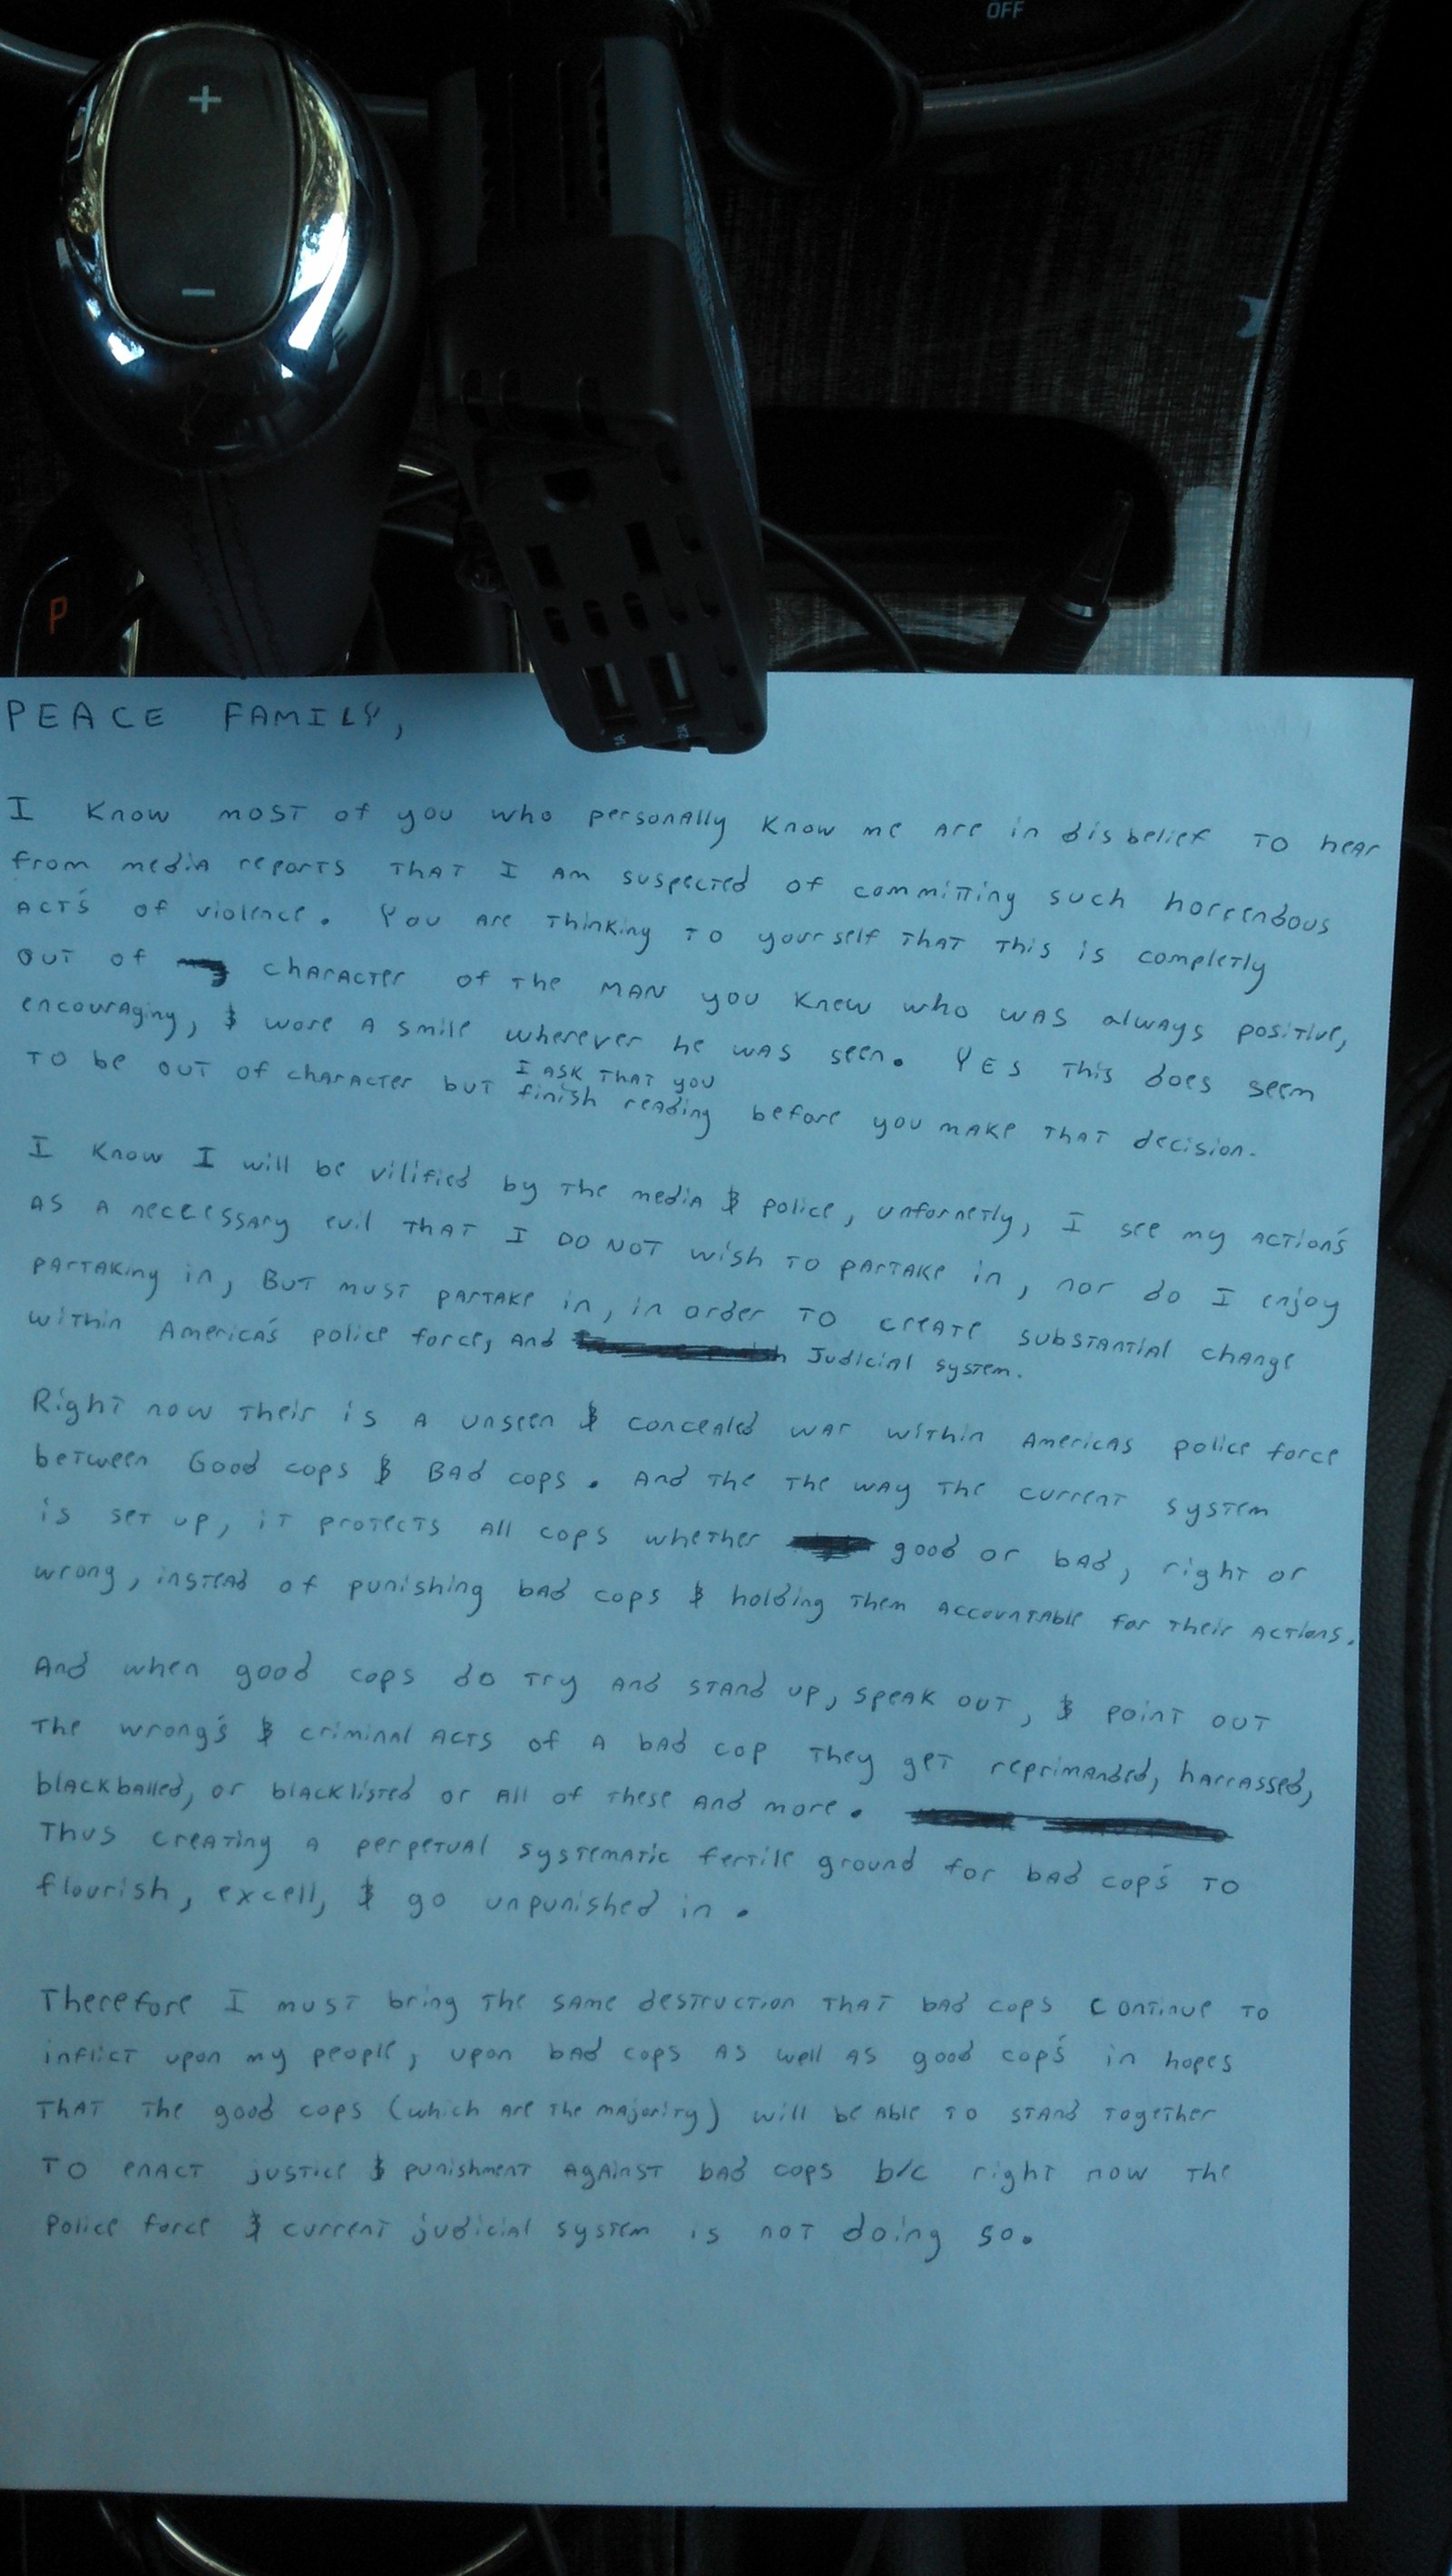 OFF
+
−
P
1A
2.1A
PEACE FAMILY,
I know most of you who personally know me are in disbelief to hear
from media reports that I am suspected of committing such horrendous
acts of violence. You are thinking to yourself that this is completly
out of character of the man you knew who was always positive,
encouraging, & wore a smile wherever he was seen. Yes this does seem
I ask that you
to be out of character but finish reading before you make that decision.
I know I will be vilified by the media & police, unfornetly, I see my action's
as a neccessary evil that I DO NOT wish to partake in, nor do I enjoy
partaking in, But must partake in, in order to create substantial change
within America's police force, and Judicial system.
Right now their is a unseen & concealed war within Americas police force
between Good cops & Bad cops. And the the way the current system
is set up, it protects all cops whether good or bad, right or
wrong, instead of punishing bad cops & holding them accountable for their actions.
And when good cops do try and stand up, speak out, & point out
the wrong's & criminal acts of a bad cop they get reprimanded, harrassed,
blackballed, or blacklisted or all of these and more.
Thus creating a perpetual systematic fertile ground for bad cop's to
flourish, excell, & go unpunished in.
Therefore I must bring the same destruction that bad cops continue to
inflict upon my people, upon bad cops as well as good cop's in hopes
that the good cops (which are the majority) will be able to stand together
to enact justice & punishment against bad cops b/c right now the
police force & current judicial system is not doing so.